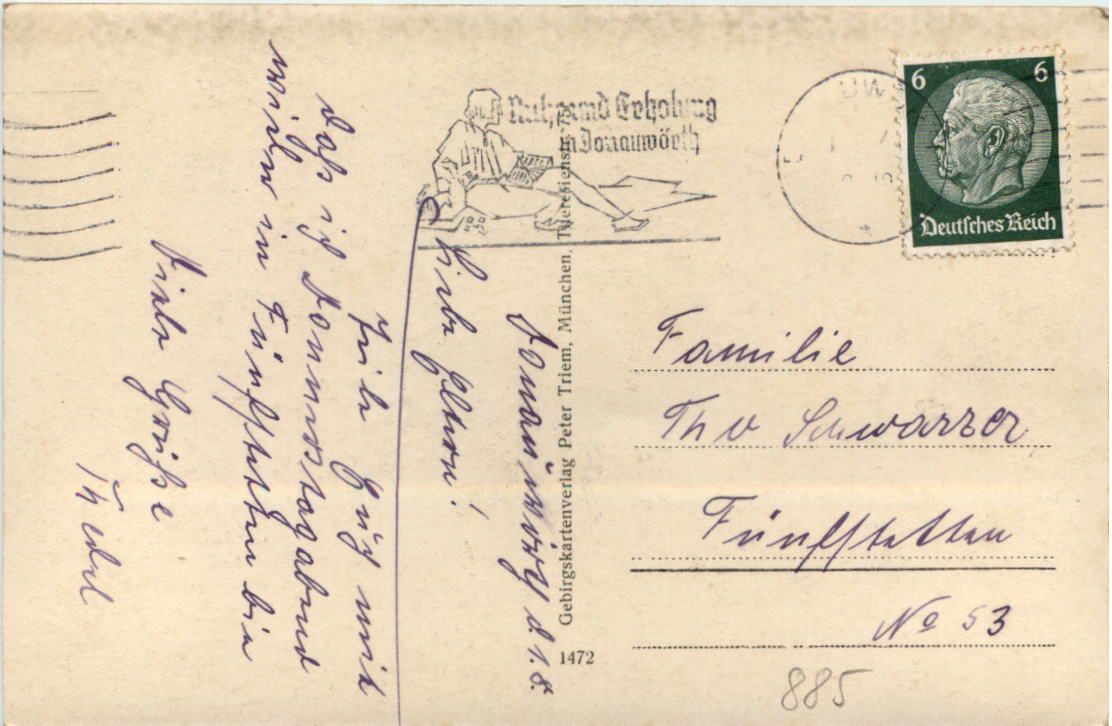 Ruhe und Erholung
in Donauwörth
6 6
Deutsches Reich
Donauwörth d. 1. 8.
Liebe Eltern!
Teile Euch mit
daß ich Donnerstagabend
wieder in Fünfstetten bin
Viele Grüße
Gebirgskartenverlag Peter Triem, München, Theresienstr.
1472
Familie
Th v Schwarzer
Fünfstetten
No 53
885